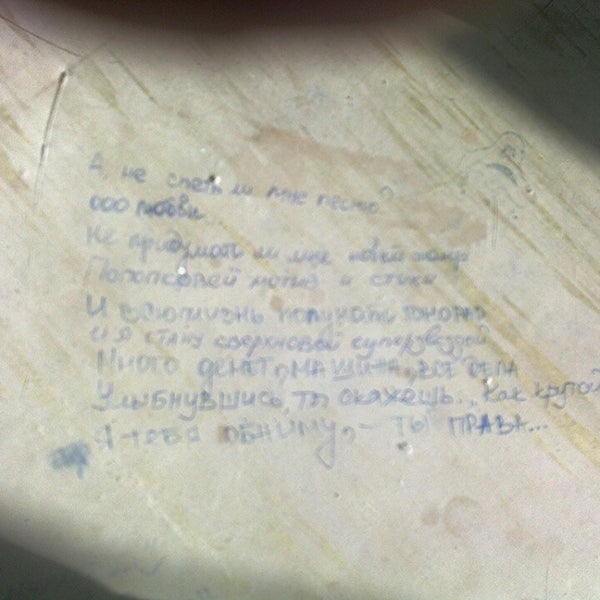 А, не спеть ли мне песню
ооо любви
Не придумать ли мне новый жанр
Попопсовей мотив и стихи
И всю жизнь получать гонорар
и я стану сверхновой суперзвездой
Много денег, машина, все дела
Улыбнувшись, ты скажешь.. Как крутой
Я тебя обниму, - ты права...